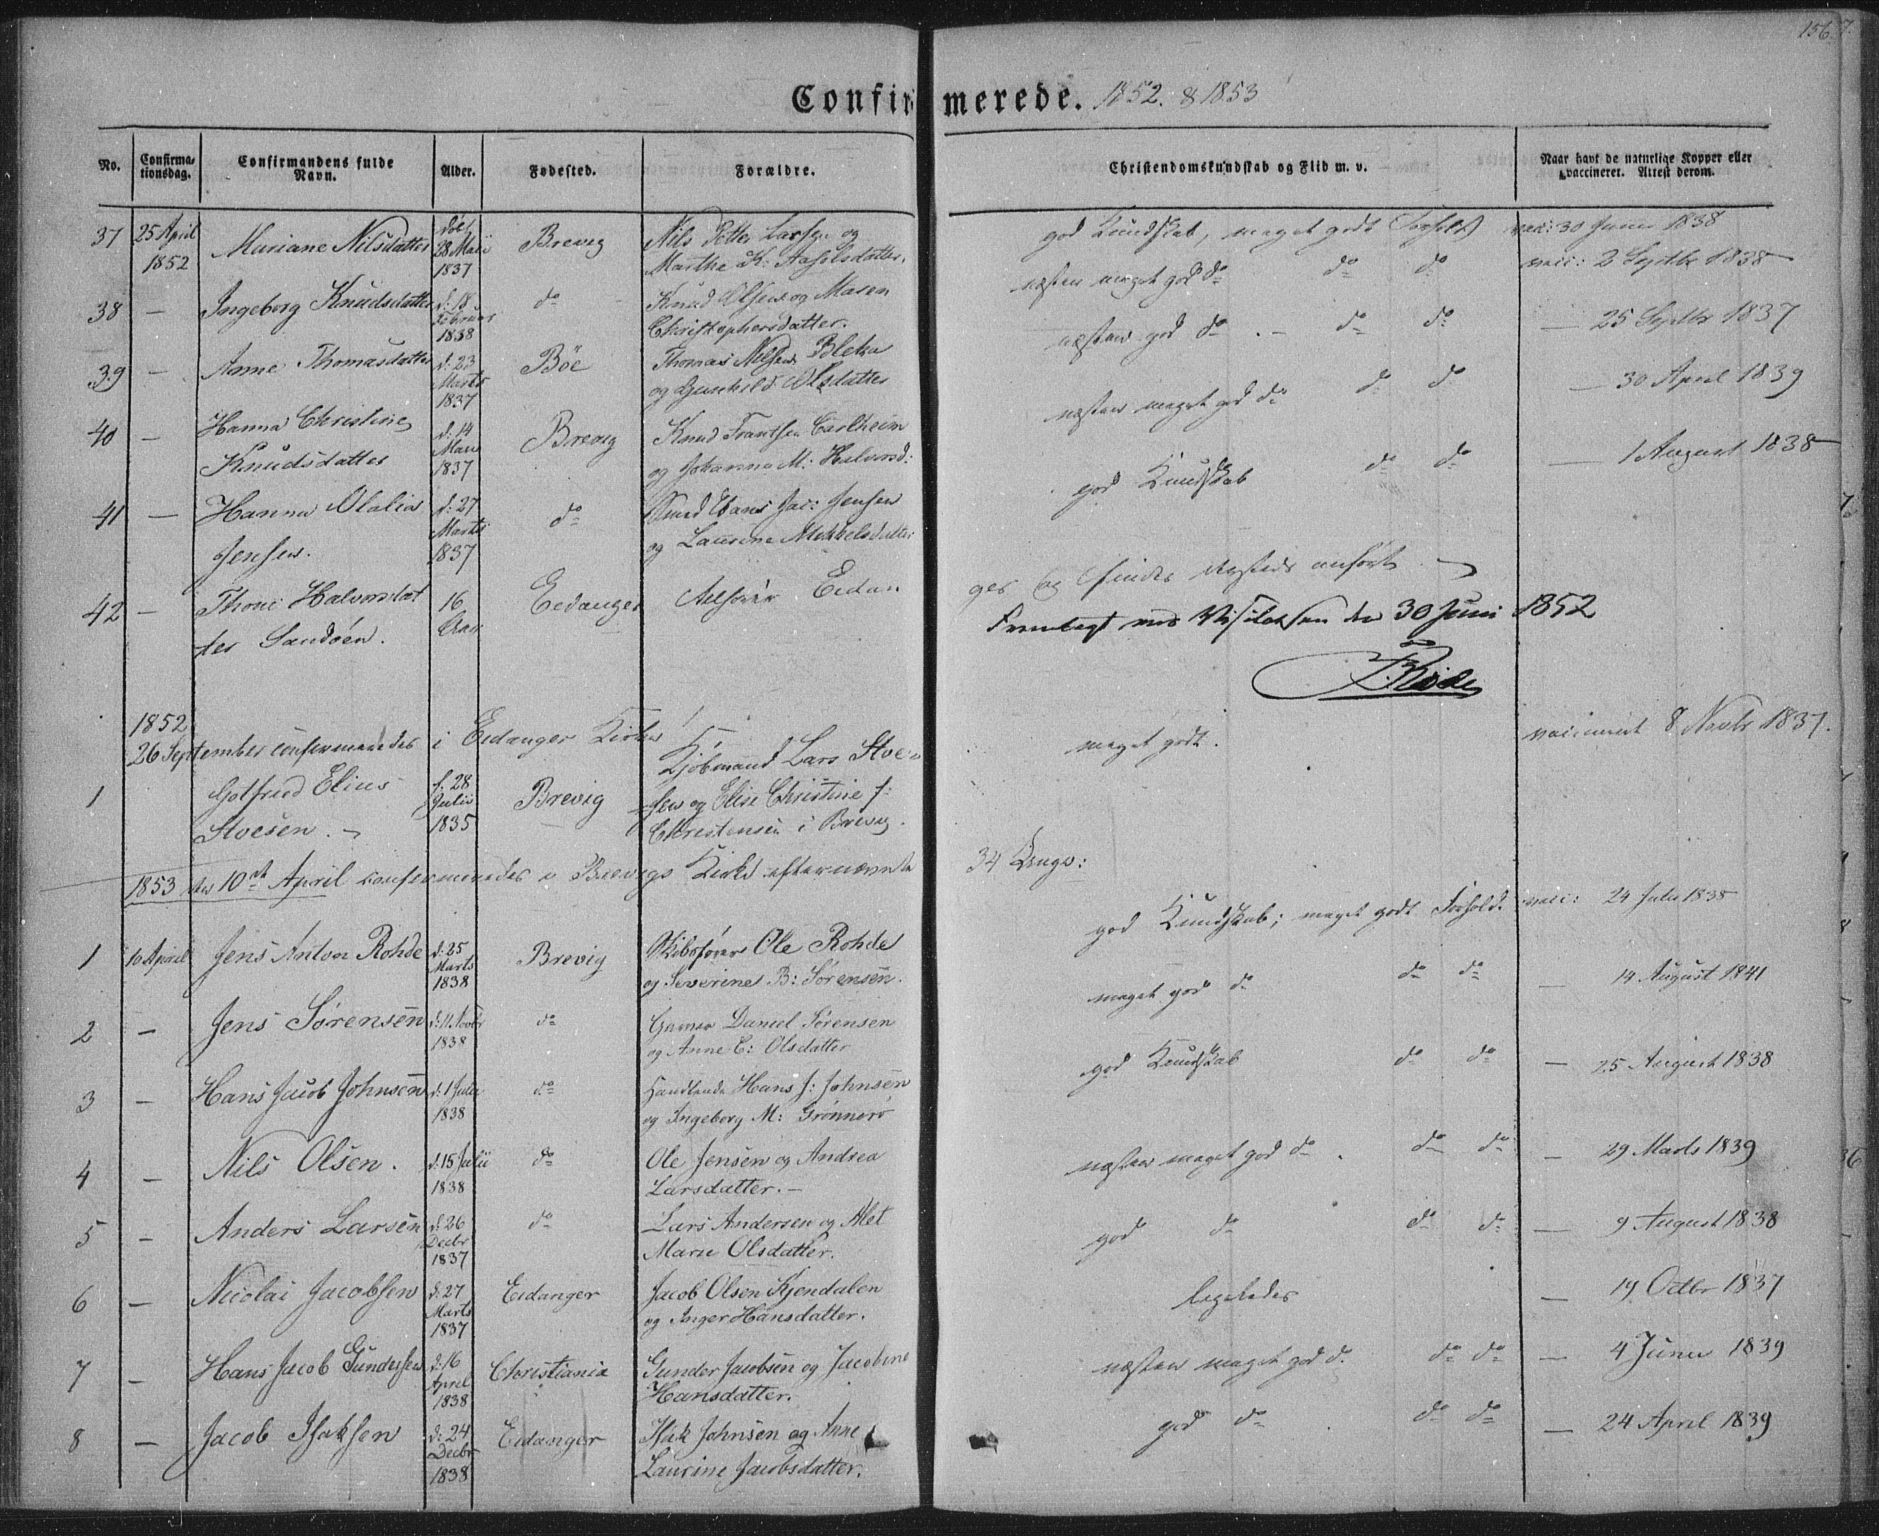 156
Confirmerede. 1852. & 1853
No. Confirmationsdag. Confirmandens fulde Navn. Alder. Fødested. Forældre. Christendomskundskab og Flid m. v. Naar havt de naturlige Kopper eller vaccineret. Attest derom.
37 25 April 1852 Mariane Nilsdatter 28 1837 Brevig Nils Petter Larsen og
Marthe K: god Kundskab, meget godt Forhold vac: 30 Juni 1838
38 — Ingeborg Knudsdatter d: 18 Februar 1838 do Knud Olsen og Maren
Christophersdatter. næsten meget god do do do vacc: 2 Septbr 1838
39 — Anne Thomasdatter d: 23 Marts 1837 Böe Thomas Nilsen Bleka
og Gunhild Olsdatter næsten god do — do do — 25 Septbr 1837
40 — Hanna Christine
Knudsdatter d: 14 1837 Brevig Knud Frantsen Carlheim
og Johanna M: Halvorsd: næsten meget god do do do — 30 April 1839
41 — Hanna Olalia
Jensen. d: 27 Marts 1837 do Smed Hans Jac: Jensen
og Laurine Mikkelsdatter god Kundskab do do — 1 August 1838
42 — Thone Halvorsdat
ter Sandöen. 16 Aar Eidanger Eidan
ger og findes anført
Fremlagt ved Visitatsen den 30 Juni 1852
1852
26 September confirmeredes i Eidanger Kirke
1 Gotfried Elius
Stoesen. — f: 28 Julii 1835 Brevig Kjöbmand Lars Stoe-
sen og Elise Christine f:
Christensen i Brevig. meget godt. vaccineret 8 Novbr 1837.
1853 den 10de April confirmeredes i Brevigs Kirke efternævnte
34 Unge:
1 10 April Jens Anton Rohde d: 25 Marts 1838 Brevig Skibsfører Ole Rohde
og Severine B: Sørensen. god Kundskab; meget godt Forhold vacc: 24 Julii 1838
2 — Jens Sørensen d: 11 Novbr 1838 do Daniel Sørensen
og Anne E: Olsdatter meget god do do do — 14 August 1841
3 — Hans Jacob Johnsen d: 1 1838 do Handlende Hans J: Johnsen
og Ingeborg M: Grönnerö god Kundskab do do — 25 August 1838
4 — Nils Olsen. d: 15 Julii 1838 do Ole Jensen og Andrea
Larsdatter. — næsten meget god do. do do — 29 1839
5 — Anders Larsen d: 26 Decbr 1837 do Lars Andersen og Alet
Marie Olsdatter. god do do do — 9 August 1838
6 — Nicolai Jacobsen d: 27 Marts 1837 Eidanger Jacob Olsen Kjendalen
og Inger Hansdatter. ligeledes — 19 Octbr 1837
7 — Hans Jacob Gundersen d: 16 April 1838 Christiania Gunder Jacobsen og Jacobine
Hansdatter. næsten meget god do. do do — 4 Junii 1839
8 — Jacob Isaksen d: 24 Decbr 1838 Eidanger Isak Johnsen og Anne
Laurine Jacobsdatter. god do do do — 24 April 1839